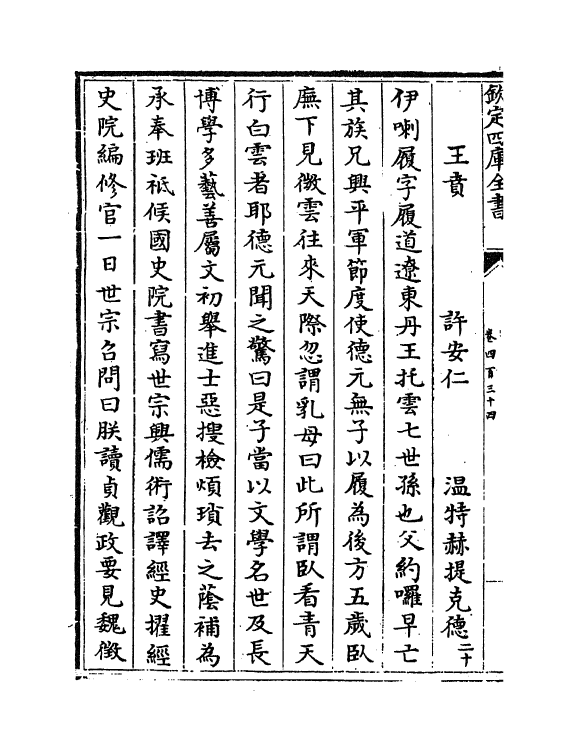 欽定四庫全書
卷四百三十四
王賁　許安仁　温特赫提克德二十
伊喇履字履道遼東丹王托雲七世孫也父約囉早亡
其族兄興平軍節度使德元無子以履為後方五歲臥
廡下見微雲往來天際忽謂乳母曰此所謂臥看青天
行白雲者耶德元聞之驚曰是子當以文學名世及長
博學多藝善屬文初舉進士惡搜檢煩瑣去之蔭補為
承奉班祗候國史院書寫世宗興儒術詔譯經史擢經
史院編修官一日世宗召問曰朕讀貞觀政要見魏徵